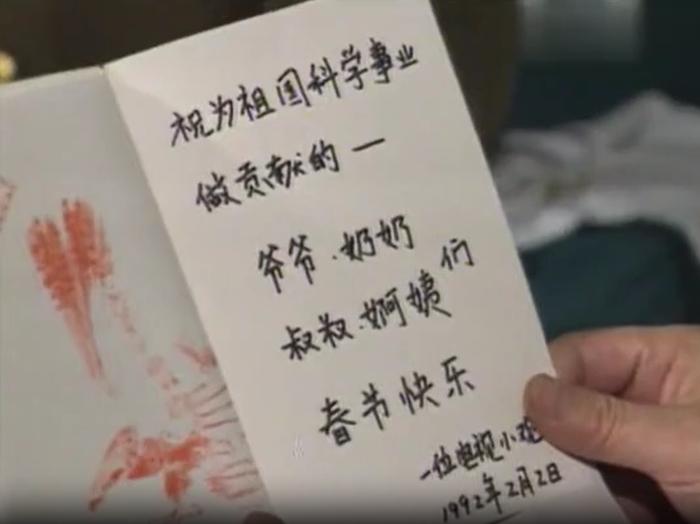 祝为祖国科学事业
做贡献的一
爷爷.奶奶
叔叔.婀姨们
春节快乐
一位电视小
1992年2月2日